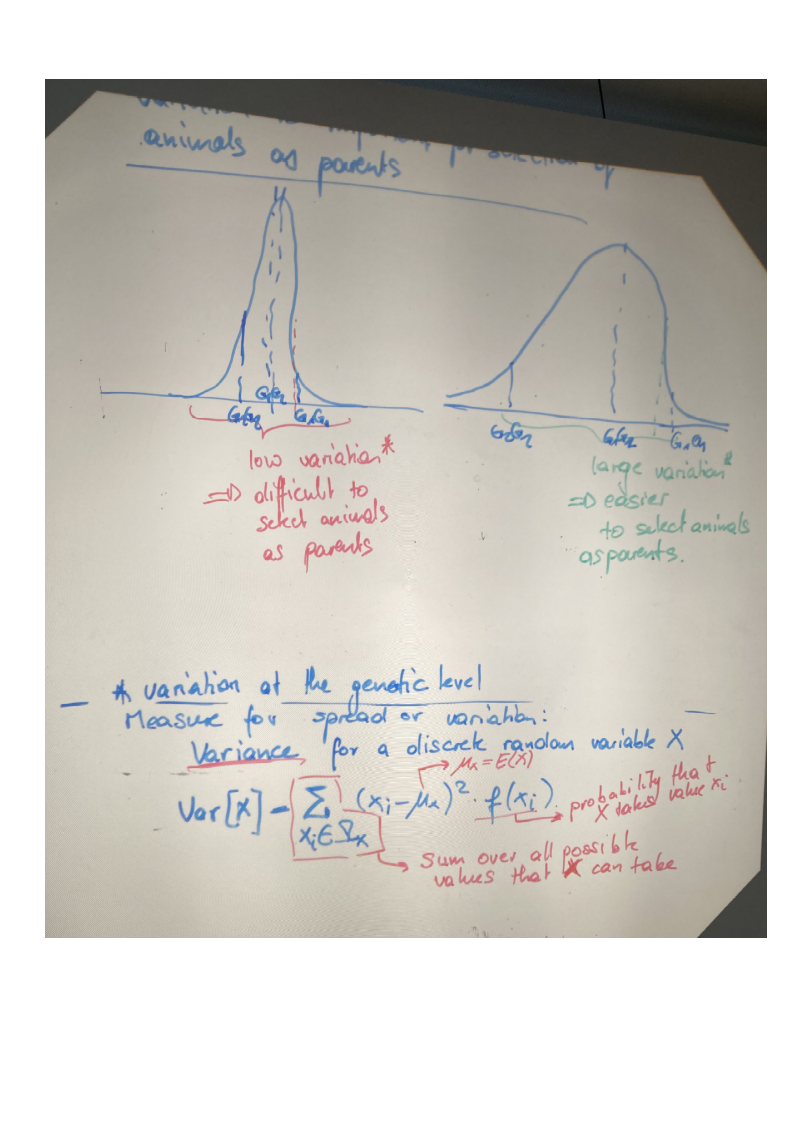 variation is important for selection of
animals as parents
G1G2
G2G2
G1G1
low variation*
⇒ difficult to
select animals
as parents
G2G2
G1G2
G1G1
large variation*
⇒ easier
to select animals
as parents.
— * variation at the genetic level
Measure for spread or variation:
Variance for a discrete random variable X
μx = E(X)
Var[X] = Σ (xi - μx)² · f(xi)
xi ∈ Ωx
probability that
X takes value xi
sum over all possible
values that X can take